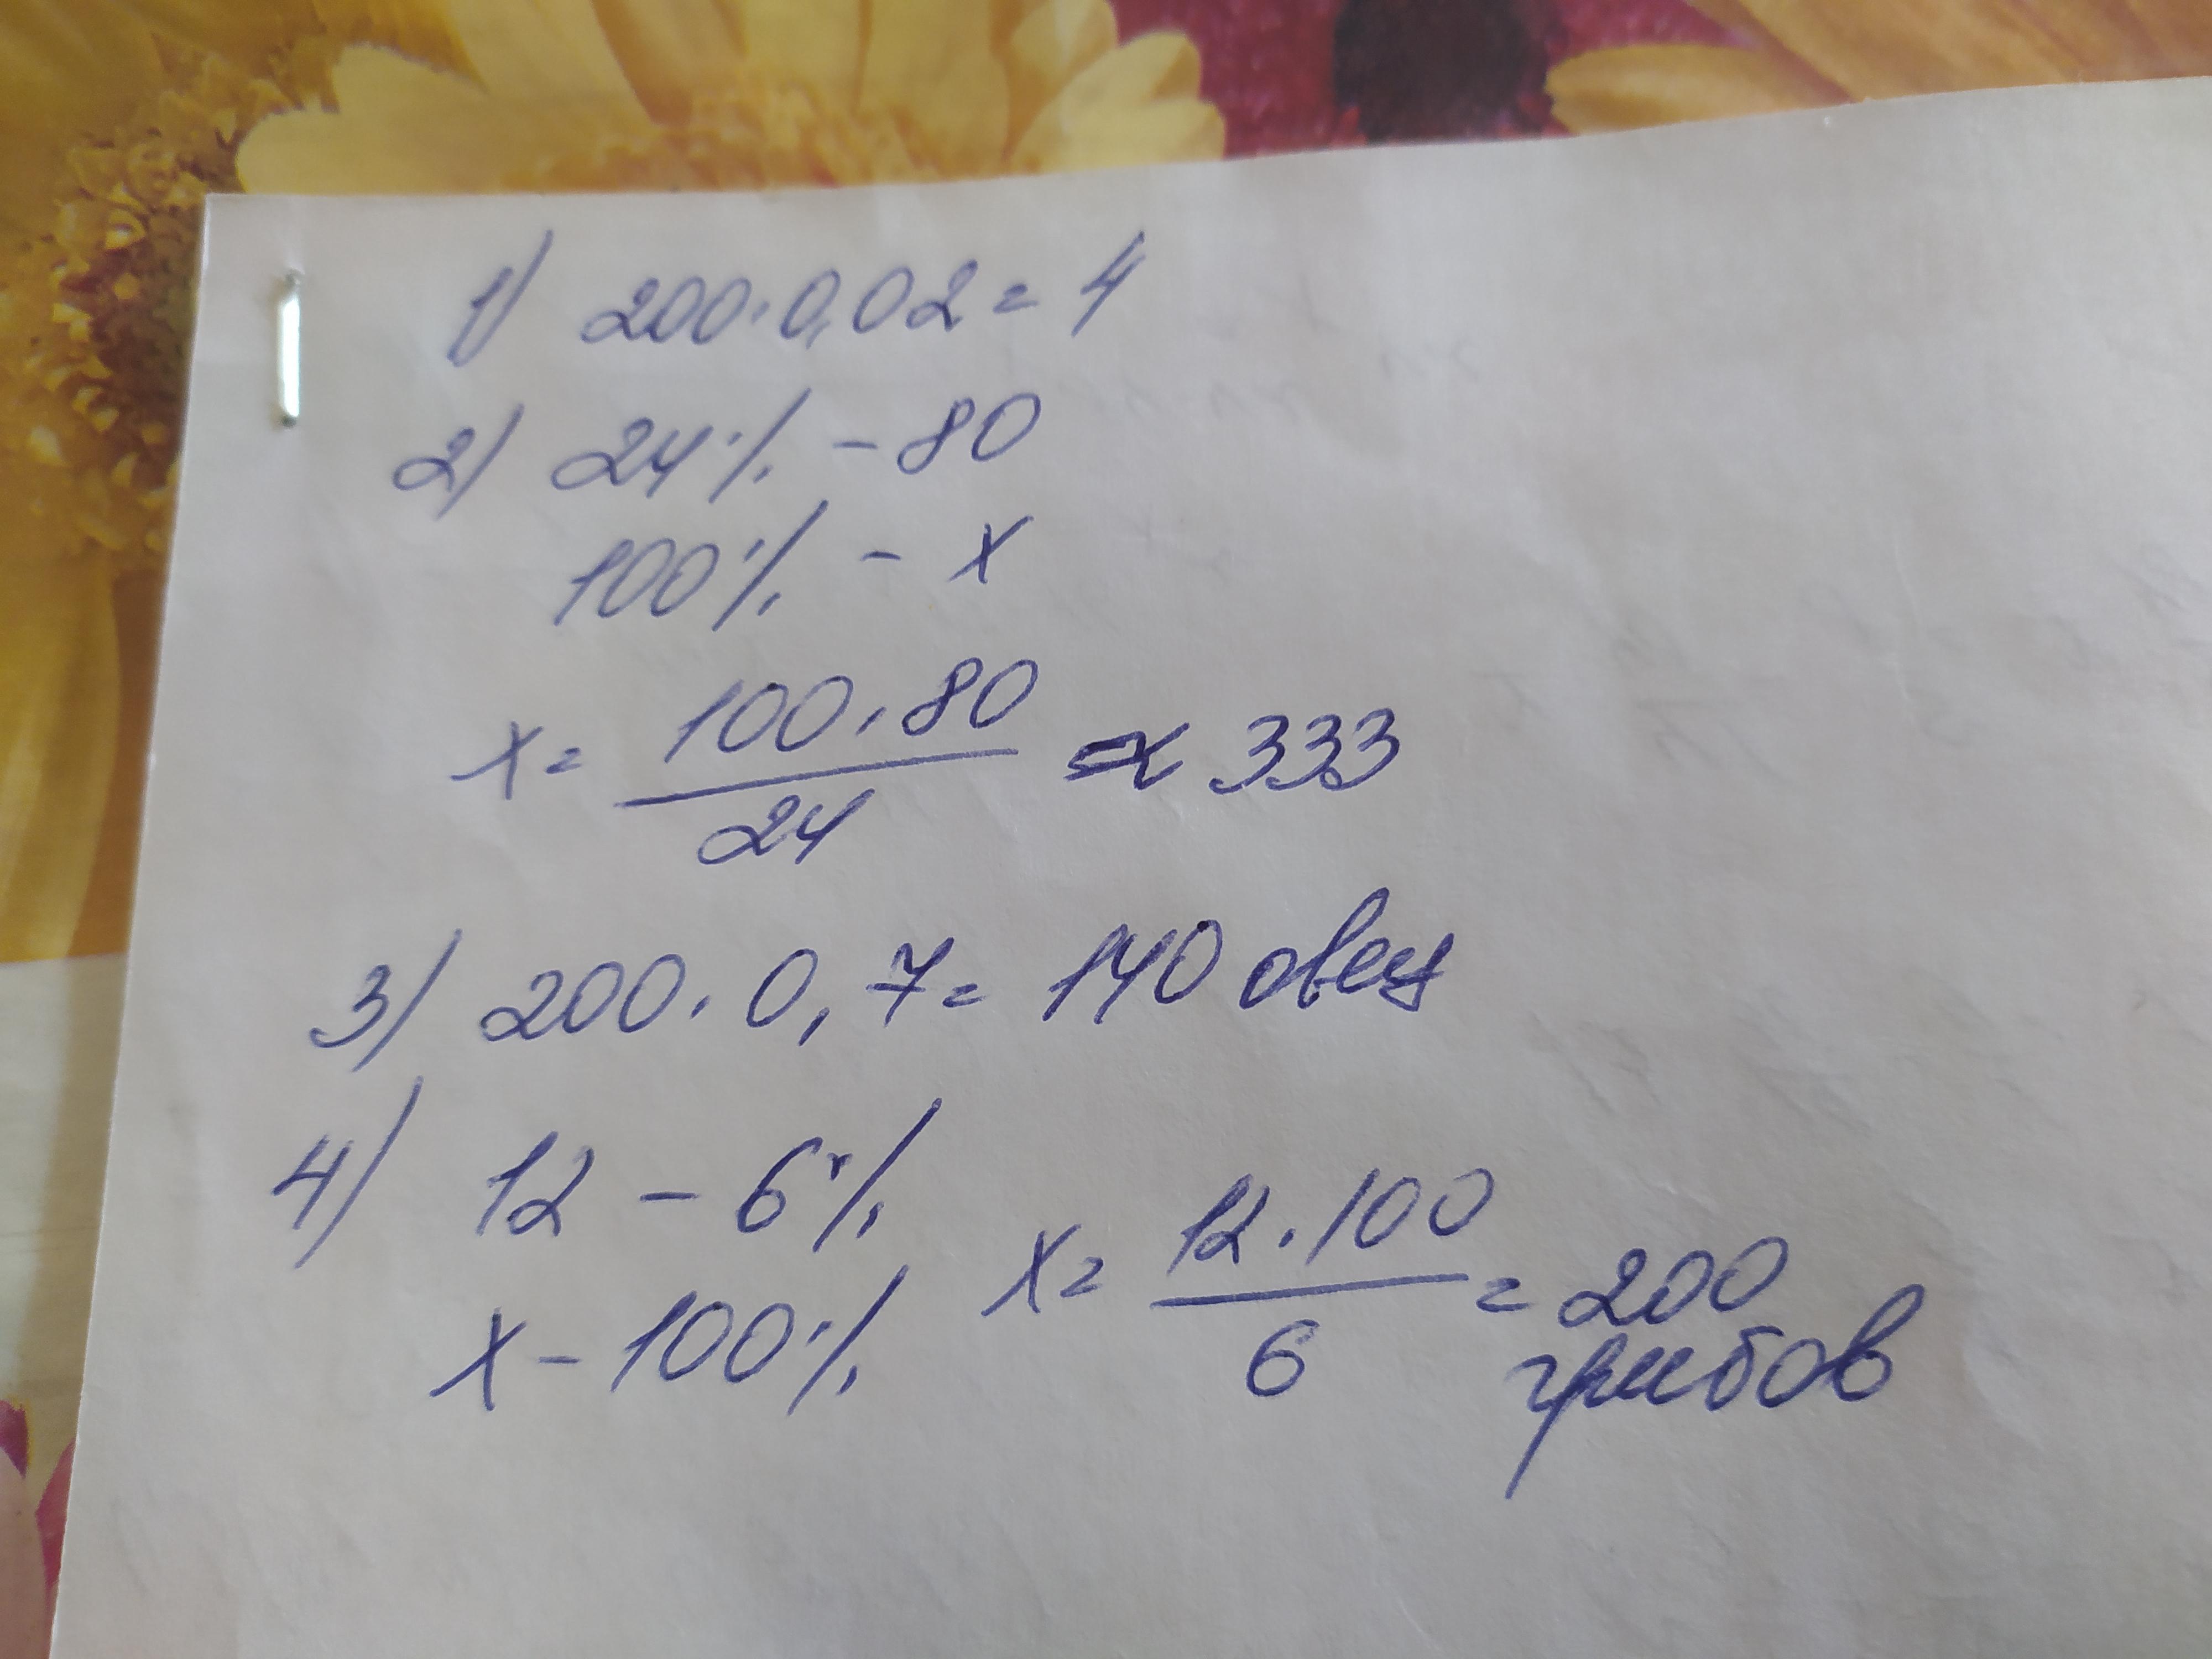 1) 200·0,02=4
2) 24% - 80
100% - x
x= 100·80 / 24 ≈ 333
3) 200·0,7= 140 овец
4) 12 - 6%
x - 100%
x= 12·100 / 6 = 200
грибов